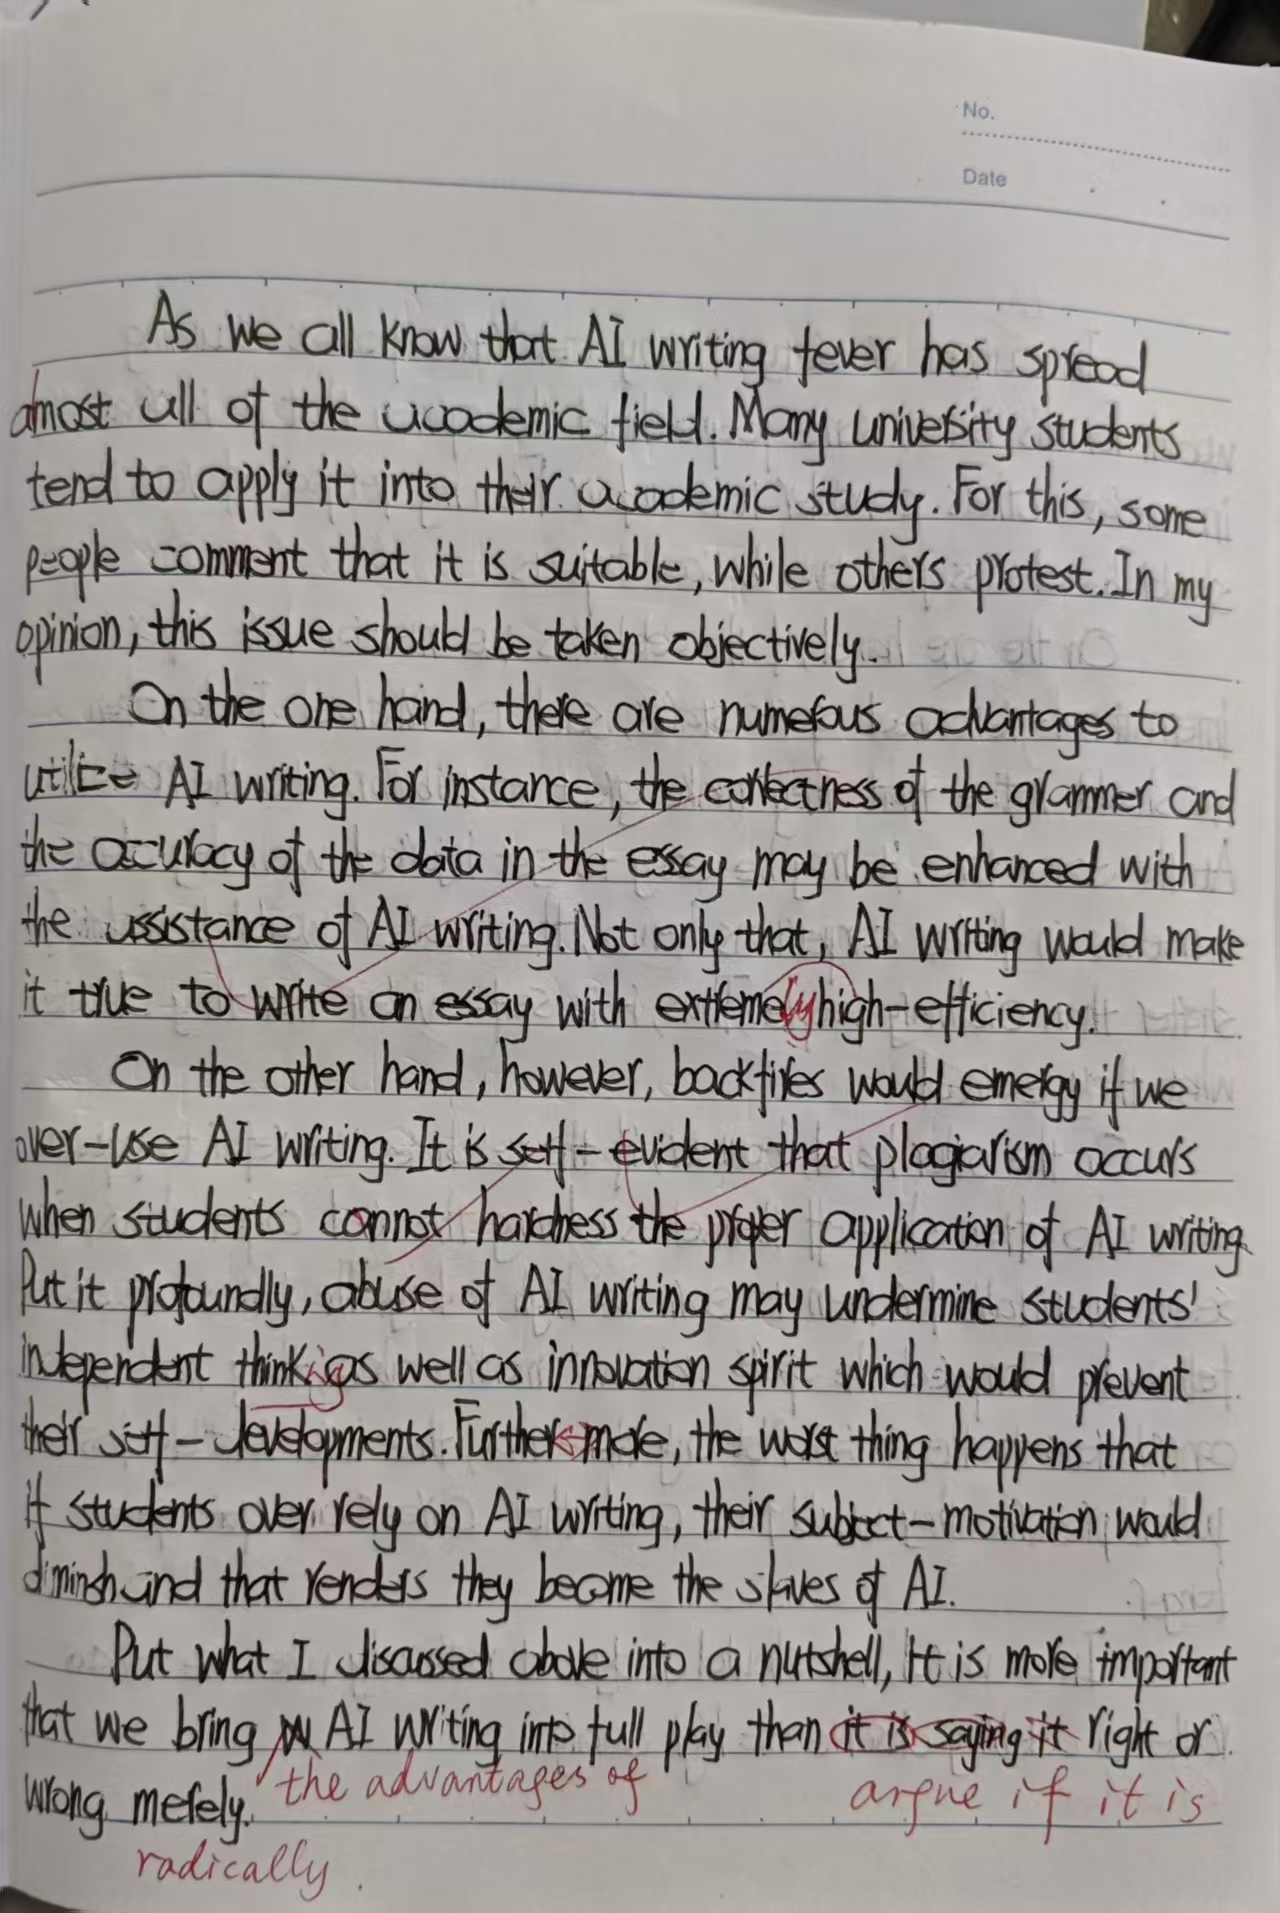 No.
Date
As we all know that AI writing fever has spread
almost all of the academic field. Many university students
tend to apply it into their academic study. For this, some
people comment that it is suitable, while others protest. In my
opinion, this issue should be taken objectively.
On the one hand, there are numerous advantages to
utilize AI writing. For instance, the correctness of the grammer and
the accuracy of the data in the essay may be enhanced with
the assistance of AI writing. Not only that, AI writing would make
it true to write an essay with extremely high-efficiency.
On the other hand, however, backfires would emergy if we
over-use AI writing. It is self-evident that plagiarism occurs
when students cannot hardness the proper application of AI writing.
Put it profoundly, abuse of AI writing may undermine students'
independent thinkig as well as innovation spirit which would prevent
their self-developments. Further more, the worst thing happens that
if students over rely on AI writing, their subject-motivation would
diminsh and that renders they become the slaves of AI.
Put what I discussed above into a nutshell, It is more important
that we bring AI writing into full play than it is saying it right or
the advantages of argue if it is
wrong merely.
radically.